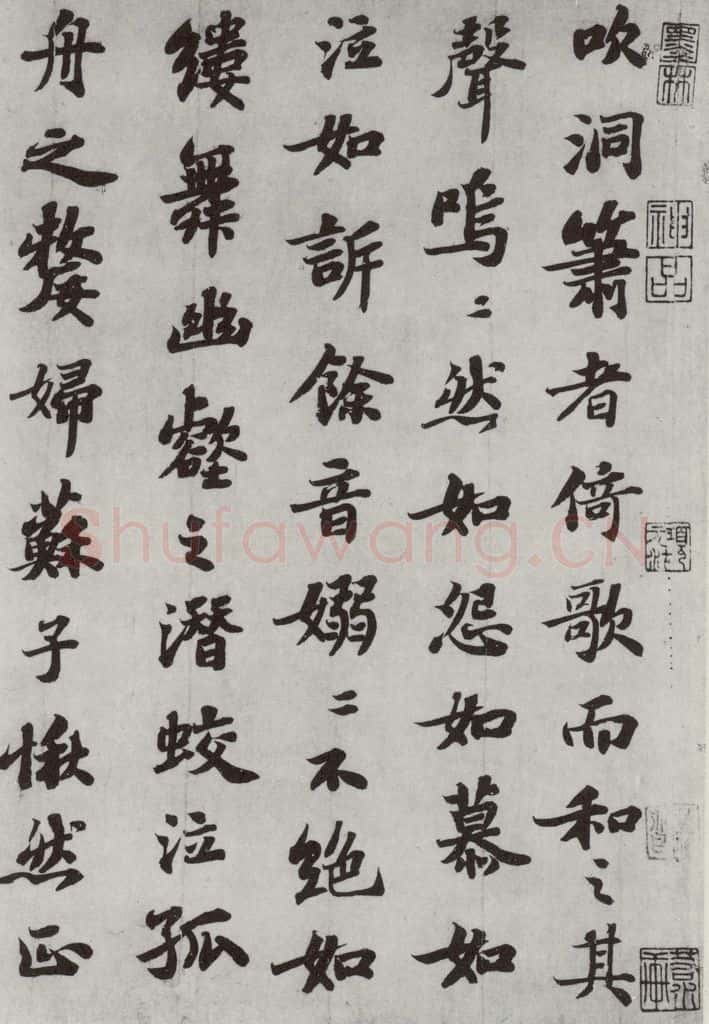 吹洞簫者倚歌而和之其
聲嗚〻然如怨如慕如
泣如訴餘音嫋〻不絕如
縷舞幽壑之潛蛟泣孤
舟之嫠婦蘇子愀然正
墨林
神品
Shufawang.CN